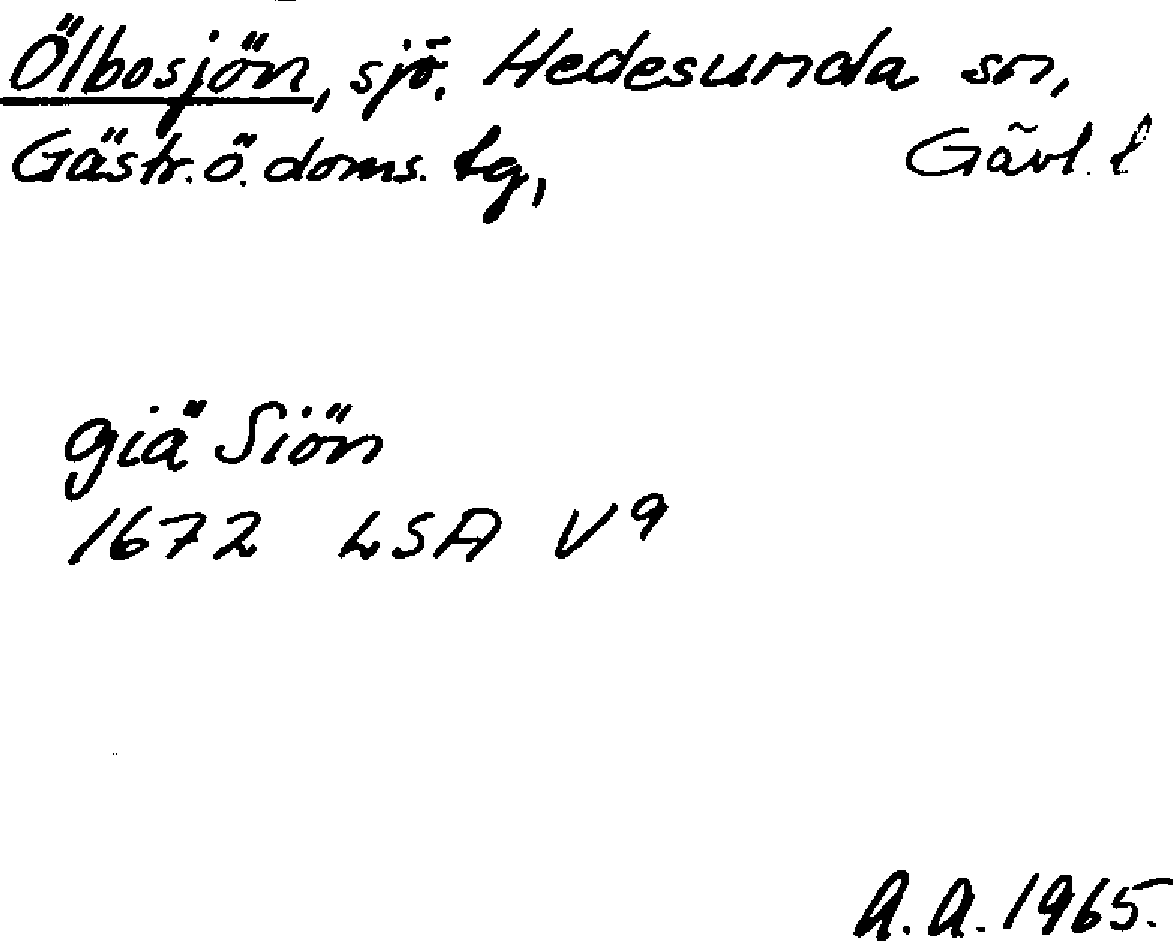 Ölbosjön, sjö. Hedesunda sn,
Gästr. ö. doms. tg, Gävl. l
giä Siön
1672 LSA V9
A. A. 1965.